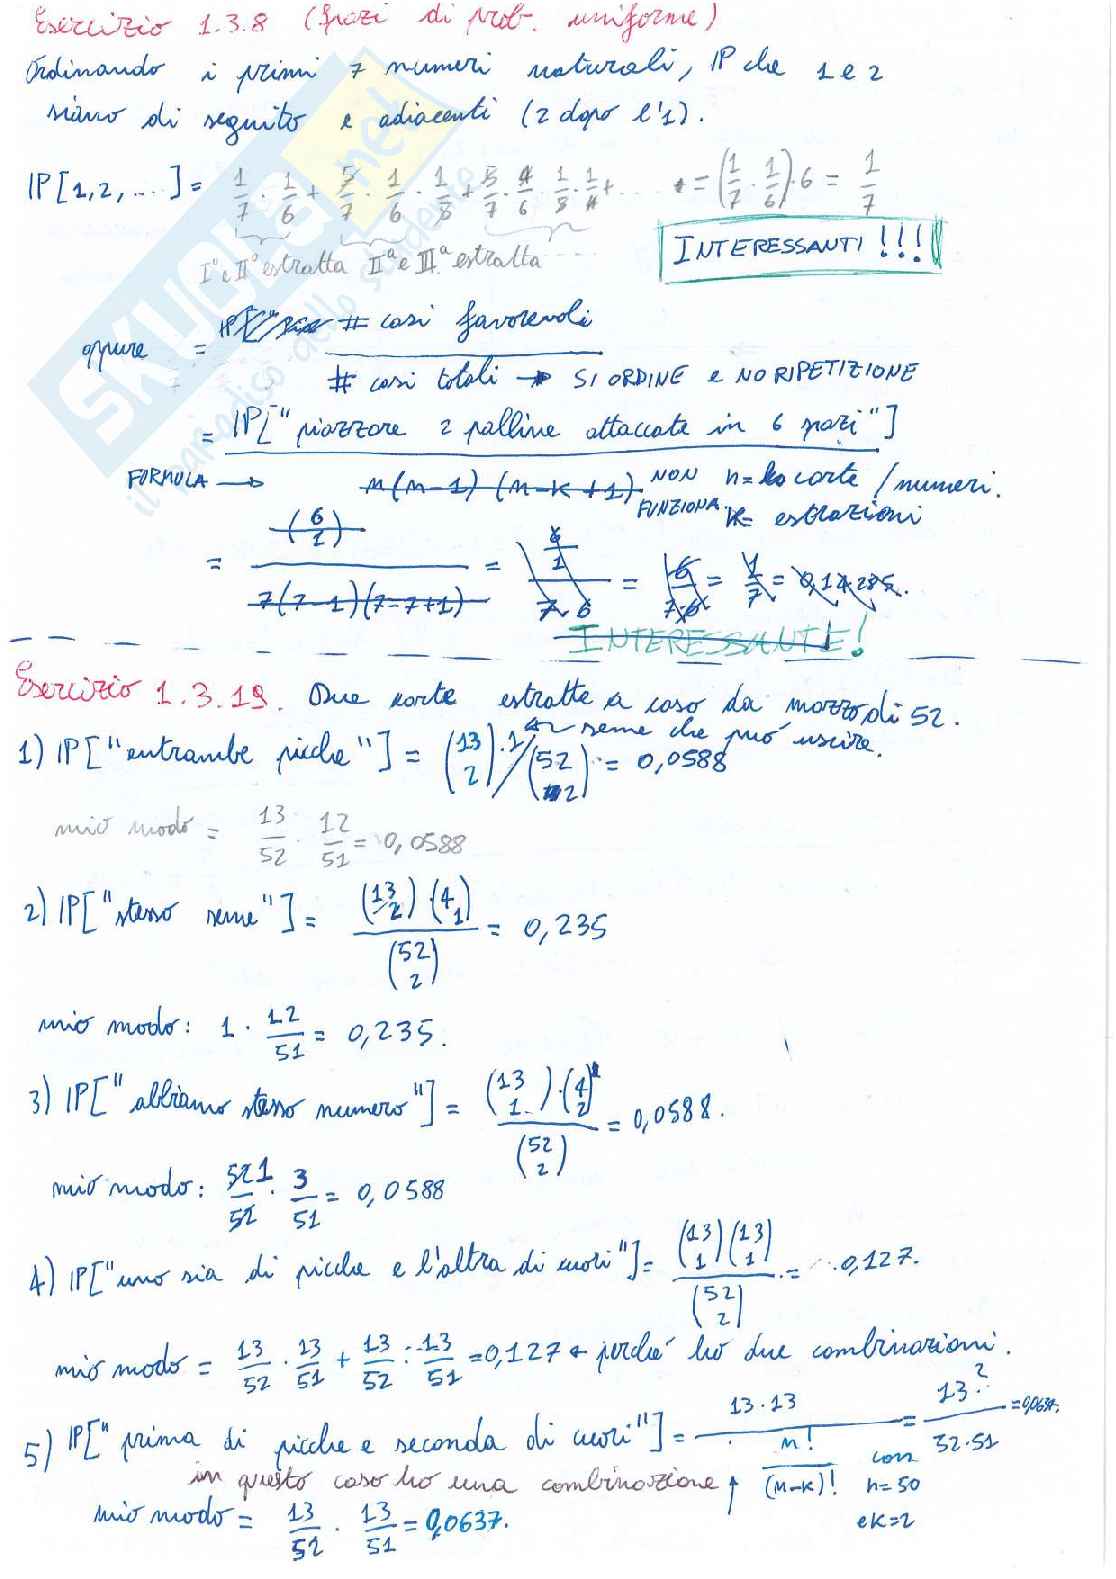 Esercizio 1.3.8 (spazi di prob. uniforme)
Ordinando i primi 7 numeri naturali, IP che 1 e 2
siano di seguito e adiacenti (2 dopo l'1).
IP[1,2,...] = 1/7 · 1/6 + 5/7 · 1/6 · 1/5 + 5/7 · 4/6 · 1/5 · 1/4 + ... = (1/7 · 1/6) · 6 = 1/7
I° e II° estratta II° e III° estratta ...
INTERESSANTI!!!
oppure = # casi favorevoli
# casi totali → SI ORDINE e NO RIPETIZIONE
= IP["piazzare 2 palline attaccate in 6 spazi"]
FORMULA → n(n-1)(n-k+1) NON FUNZIONA. n= carte/numeri.
k= estrazioni
= (6 1) / 7(7-1)(7-7+1) = 6/1 / 7·6 = 6/7·6 = 1/7 =
INTERESSANTE!
Esercizio 1.3.19. Due carte estratte a caso da mazzo di 52.
← seme che può uscire.
1) IP["entrambe picche"] = (13 2)·1/(52 2) = 0,0588
mio modo = 13/52 · 12/51 = 0,0588
2) IP["stesso seme"] = (13 2)·(4 1) / (52 2) = 0,235
mio modo: 1 · 12/51 = 0,235.
3) IP["abbiamo stesso numero"] = (13 1)·(4 2) / (52 2) = 0,0588.
mio modo: 521/52 · 3/51 = 0,0588
4) IP["uno sia di picche e l'altra di cuori"] = (13 1)(13 1) / (52 2) = ...0,127.
mio modo = 13/52 · 13/51 + 13/52 · 13/51 = 0,127 ← perché ho due combinazioni.
5) IP["prima di picche e seconda di cuori"] = 13·13 / n!/(n-k)! = 13² / 52·51 = 0,0637.
con n=50 e k=2
in questo caso ho una combinazione ↑
mio modo = 13/52 · 13/51 = 0,0637.
SKUOLA.net
il paradiso dello studente